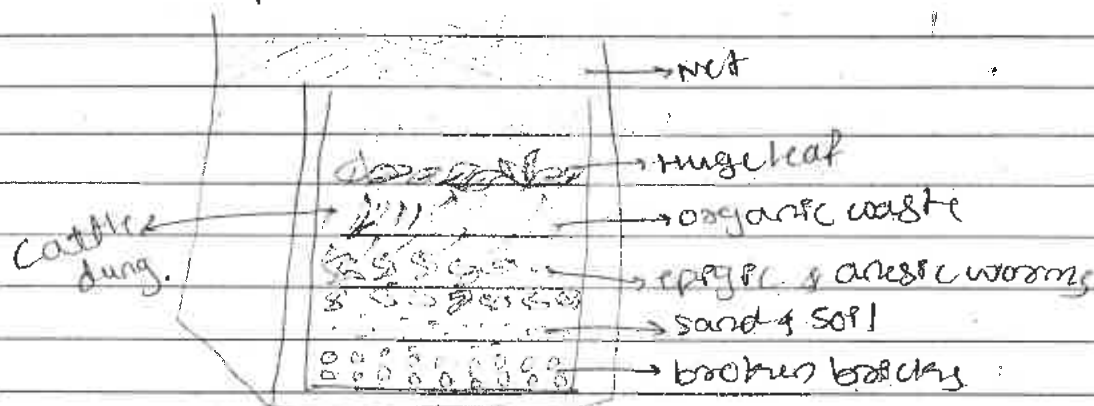 Net
Huge leaf
organic waste
Cattle
dung.
epigic & anesic worms
sand & soil
broken bricks